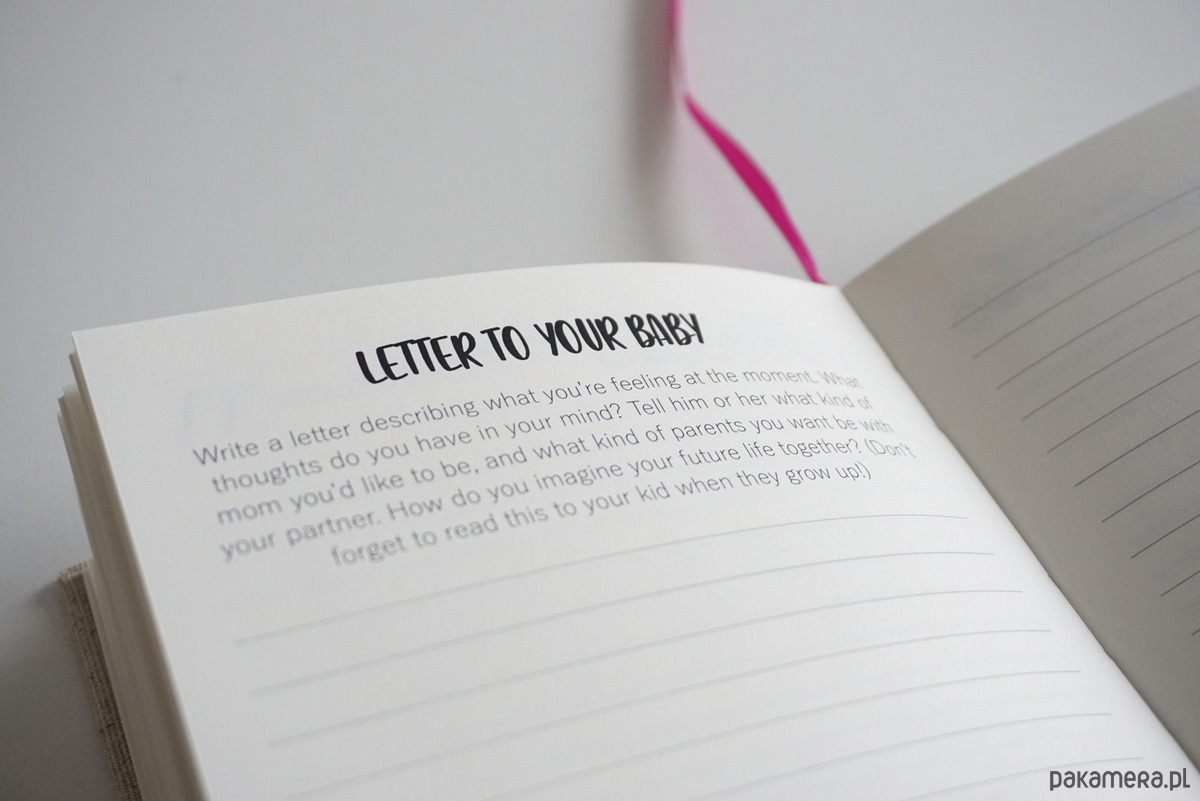 LETTER TO YOUR BABY
Write a letter describing what you're feeling at the moment. What
thoughts do you have in your mind? Tell him or her what kind of
mom you'd like to be, and what kind of parents you want be with
your partner. How do you imagine your future life together? (Don't
forget to read this to your kid when they grow up!)
pakamera.pl